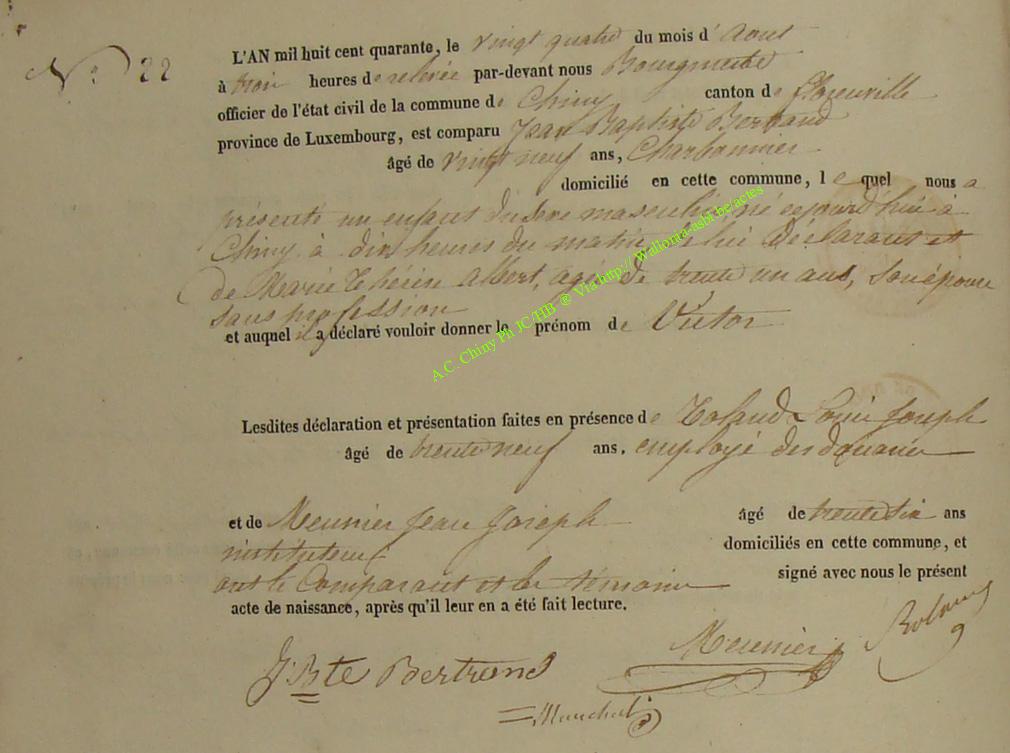 N° 22
L'AN mil huit cent quarante, le vingt quatre du mois d'Aout
à trois heures de relevée par-devant nous Bourgmestre
officier de l'état civil de la commune de Chiny canton de Florenville
province de Luxembourg, est comparu Jean Baptiste Bertrand
âgé de vingt neuf ans, Charbonnier
domicilié en cette commune, lequel nous a
présenté un enfant du sexe masculin né cejourd'hui à
Chiny à dix heures du matin de lui Déclarant et
de Marie Thérèse Albert, agée de trente un ans, son épouse
sans profession
et auquel il a déclaré vouloir donner le prénom de Victor
A.C. Chiny Ph JC/HB ® Via http:// Wallonia-asbl.be/actes
Lesdites déclaration et présentation faites en présence de Roland Louis Joseph
âgé de trente neuf ans, employé des douanes
et de Meunier Jean Joseph âgé de trente six ans
instituteur domiciliés en cette commune, et
ont le Comparant et les témoins signé avec nous le présent
acte de naissance, après qu'il leur en a été fait lecture.
J Bte Bertrand Meunier Roland